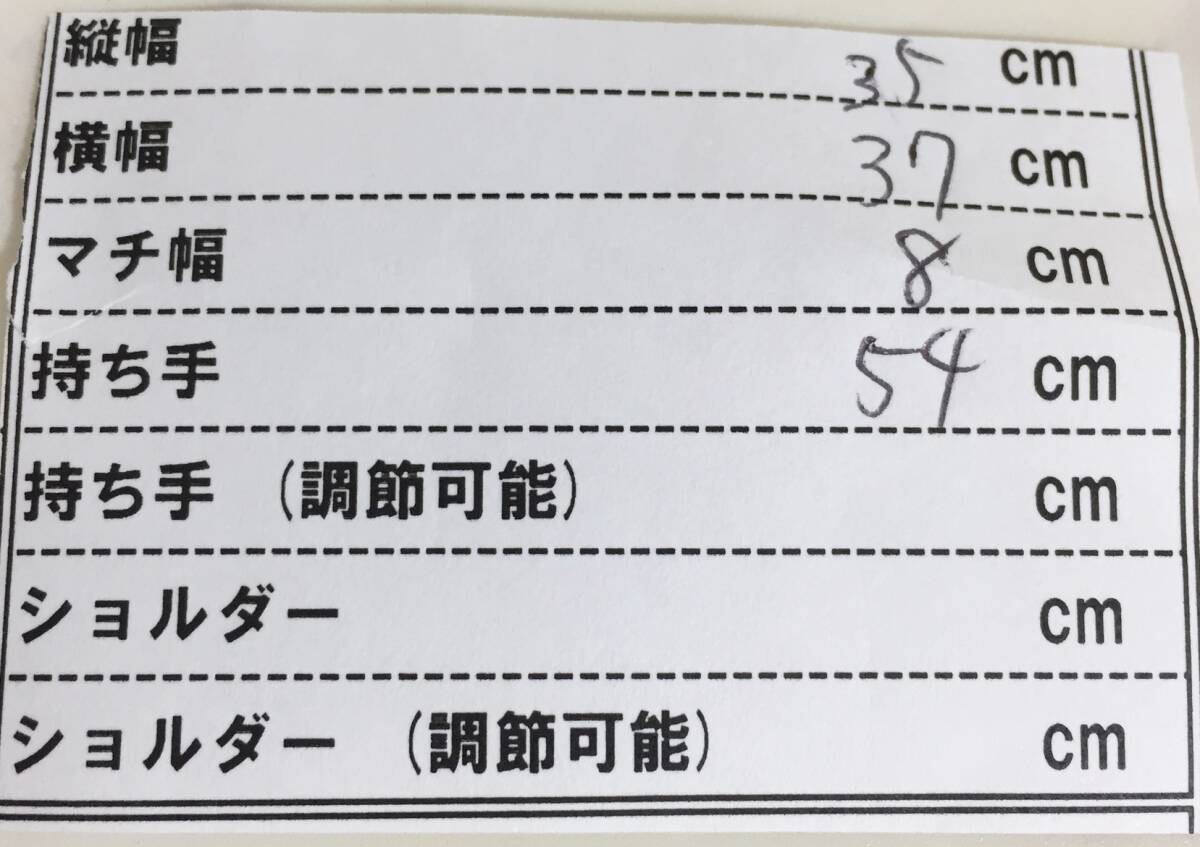 縦幅 35 cm
横幅 37 cm
マチ幅 8 cm
持ち手 54 cm
持ち手 (調節可能) cm
ショルダー cm
ショルダー (調節可能) cm